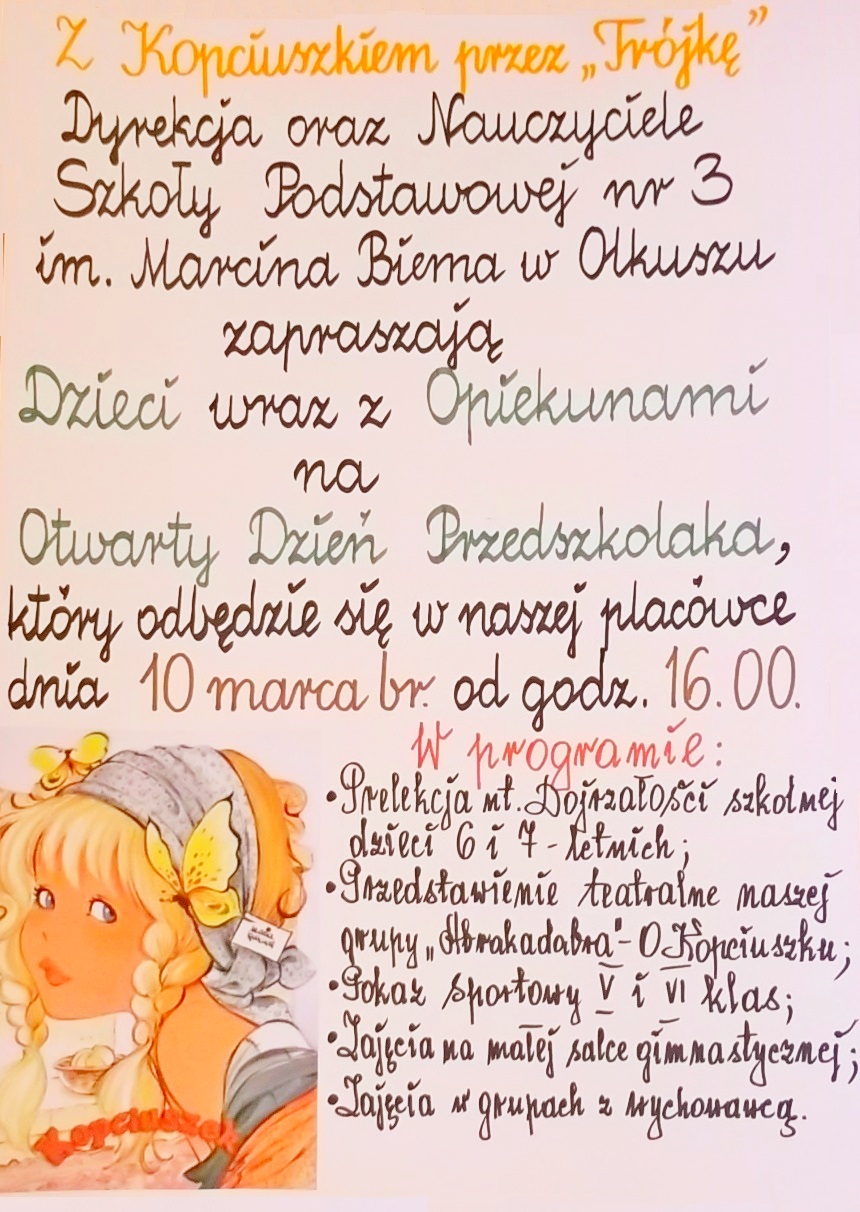 Z Kopciuszkiem przez „Trójkę”
Dyrekcja oraz Nauczyciele
Szkoły Podstawowej nr 3
im. Marcina Biema w Olkuszu
zapraszają
Dzieci wraz z Opiekunami
na
Otwarty Dzień Przedszkolaka,
który odbędzie się w naszej placówce
dnia 10 marca br. od godz. 16.00.
W programie:
• Prelekcja nt. Dojrzałości szkolnej
dzieci 6 i 7-letnich;
• Przedstawienie teatralne naszej
grupy „Abrakadabra"- O Kopciuszku;
• Pokaz sportowy V i VI klas;
• Zajęcia na małej salce gimnastycznej;
• Zajęcia w grupach z wychowawcą.
Kopciuszek